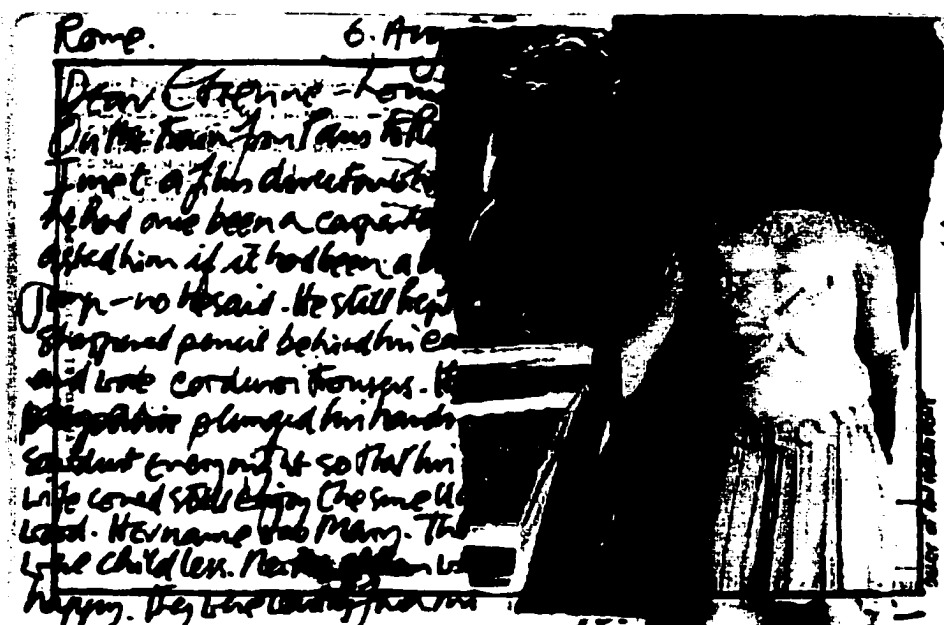 Rome. 6. Aug
Dear Etienne -
On the train from Paris to
I met a film director
he had once been a carpente
asked him if it had been a
Jump - no he said. He still kept
sharpened pencil behind his ea
and wore corduroi trousers. He
plunged his hands
sawdust every night so that his
wife could still enjoy the smell
wood. Her name was Mary. The
were childless. 
happy. They were